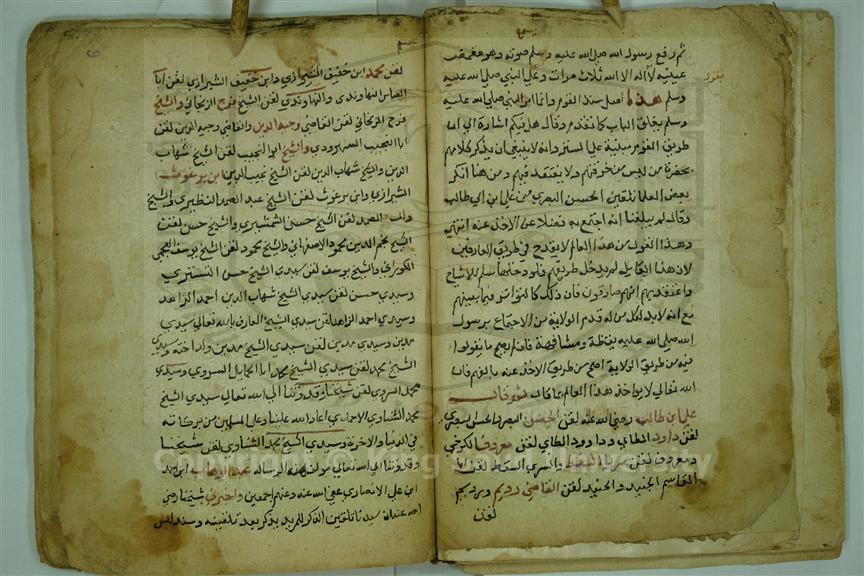 ثم رفع رسول الله صلى الله عليه وسلم صوته وهو مغمض
عينيه لا اله الا الله ثلاث مرات وعلي والنبي صلى الله عليه
وسلم هذا اصل سند القوم وانما امر النبي صلى الله عليه
وسلم بغلق الباب كما تقدم وقال هل فيكم اشارة الي ان
طريق القوم مبنية على الستر وانه لا ينبغي ان يذكر كلامهم
بحضرة من ليس من خرقتهم ولا يعتقد فيهم ومن هنا انكر
بعض العلما تلقين الحسن البصري من علي ابن ابي طالب
وقال لم يبلغنا انه اجتمع به فضلا عن الاخذ عنه انتهى
وهذا القول من هذا العالم لا يقدح في طريق العارفين
لان هذا القايل لم يدخل طريقهم فلو دخلها سلم للاشياخ
واعتقد فيهم انهم صادقون فان ذلك كالتواتر فيما بينهم
مع انه لا بد لكل من له قدم الولاية من الاجتماع برسول
الله صلى الله عليه يقظة ومشافهة فان لم يصح ما نقلوا
فيه من طريق الولاية اصح من طريق الاخذ عنه بالفهم فان
الله تعالى لا يواخذ هذا العالم بما قال
علي ابن طالب رضي الله عنه لقن الحسن البصري والحسن البصري
لقن داود الطاي وداود الطاي لقن معروف الكرخي
ومعروف لقن السقط والسري السقط لقن ابا
القاسم الجنيد والجنيد لقن القاضي رويم ورويم
لقن
يقول
لقن محمد ابن خفيف الشيرازي وابن خفيف الشيرازي لقن ابا
العباس النهاوندي والنهاوندي لقن الشيخ فرج الزنجاني والشيخ
فرج الزنجاني لقن القاضي وجيه الدين والقاضي وجيه الدين لقن
ابا النجيب السهروردي والشيخ ابو النجيب لقن الشيخ شهاب
الدين والشيخ شهاب الدين لقن الشيخ نجيب الدين ابن برغوش
الشيرازي وابن برغوث لقن الشيخ عبد الصمد النظيري والشيخ
عبد الصمد لقن الشيخ حسن الشمشيري والشيخ حسن لقن
الشيخ نجم الدين محمود الاصفهاني والشيخ محمود لقن الشيخ يوسف العجمي
الكوراني والشيخ يوسف لقن سيدي الشيخ حسن التستري
وسيدي حسن لقن سيدي الشيخ شهاب الدين احمد الزاهد
وسيدي احمد الزاهد لقن سيدي الشيخ العارف بالله تعالى سيدي
مدين وسيدي مدين لقن سيدي الشيخ محمد ابن اخته وسيدي
الشيخ محمد لقن سيدي الشيخ محمد ابا الحمايل السروي وسيدي
محمد السروي لقن شيخنا وقدوتنا الى الله تعالى سيدي الشيخ
محمد الشناوي الاحمدي اعاد الله علينا وعلى المسلمين من بركاته
في الدنيا والاخرة وسيدي الشيخ محمد الشناوي لقن شيخنا
وقدوتنا الى الله تعالى مولف هذه الرسالة عبد الوهاب ابن احمد
ابن علي الانصاري عفى الله عنه وعنهم اجمعين واخبرني شيخنا رضي
الله عنه ان سيدنا تلقين الذكر للمريد بذكر بعد تلقينه وسند لبس
Copyright © King Saud University